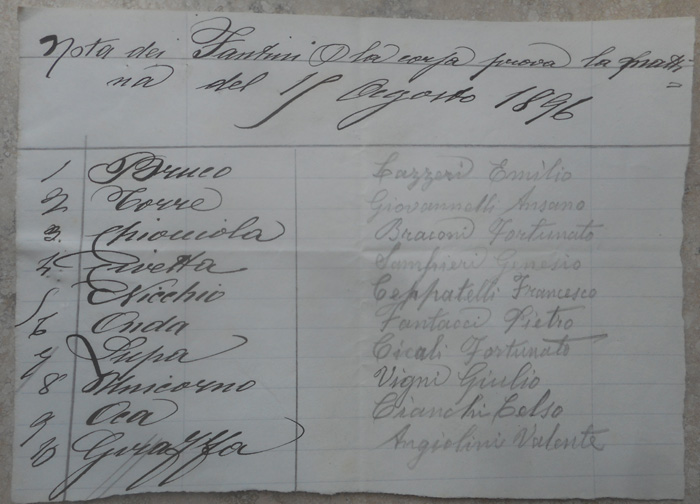 Nota dei Fantini p la corsa prova la matti=
na del 15 Agosto 1896
1 Bruco Lazzeri Emilio
2 Torre Giovannelli Ansano
3. Chiocciola Braconi Fortunato
4 Civetta Sampieri Genesio
5 Nicchio Ceppatelli Francesco
6 Onda Fantacci Pietro
7 Lupa Cicali Fortunato
8 Unicorno Vigni Giulio
9 Oca Bianchi Celso
10 Giraffa Angiolini Valente